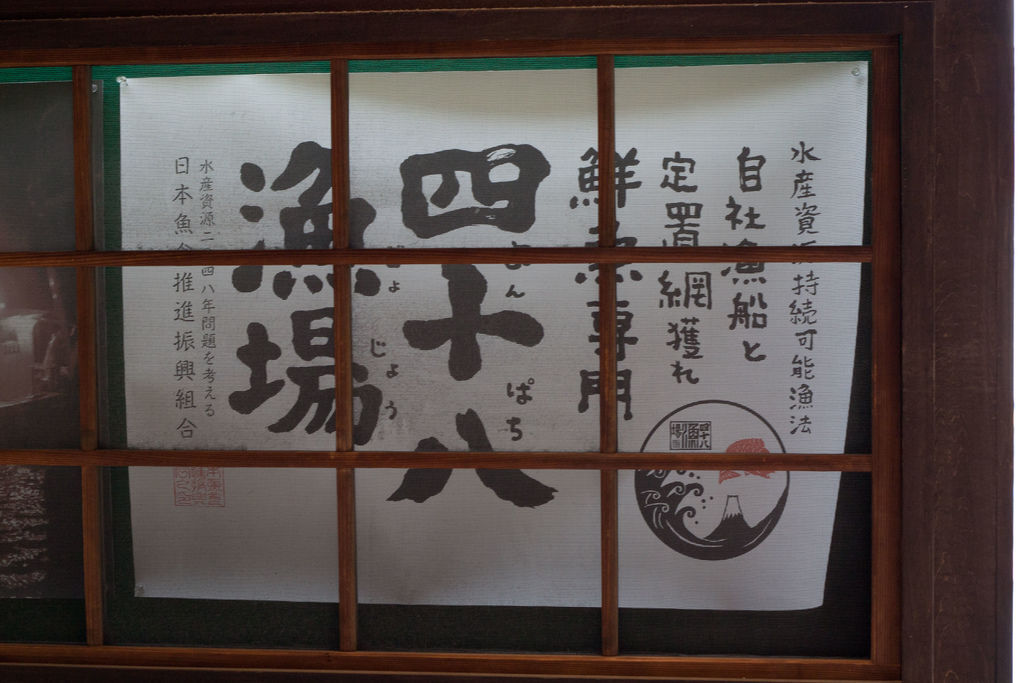 水産資源持続可能漁法
自社漁船と
定置網獲れ
鮮魚専門
四十八
よんぱち
漁場
ぎょじょう
水産資源二〇四八年問題を考える
日本魚食推進振興組合
四十八漁場